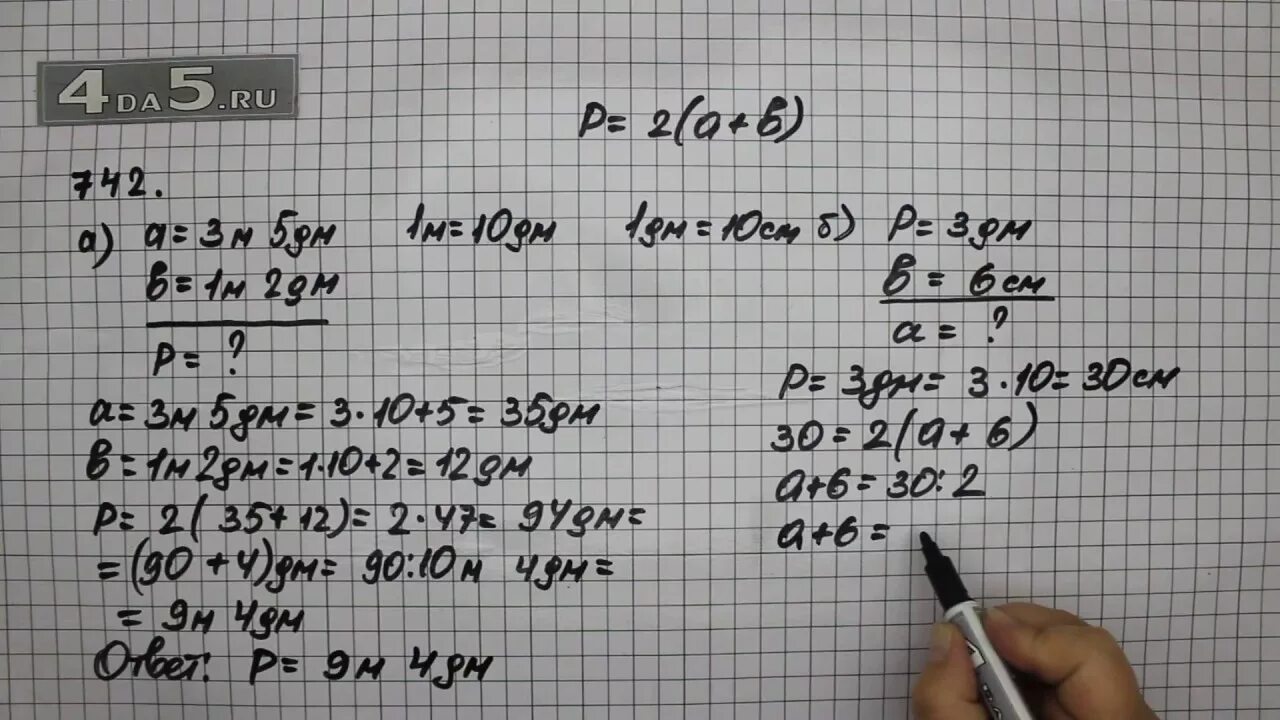 4DA5.RU
P= 2(a+b)
742.
а) a= 3м 5дм
b= 1м 2дм
P= ?
1м=10дм
1дм=10см
a= 3м 5дм= 3·10+5= 35дм
b= 1м2дм=1·10+2=12дм
P= 2( 35+12)= 2·47= 94дм=
=(90+4)дм= 90:10м 4дм=
= 9м 4дм
Ответ: P= 9м 4дм
б) P= 3дм
b = 6см
a = ?
P= 3дм= 3·10= 30см
30=2(a+6)
a+6=30:2
a+6=